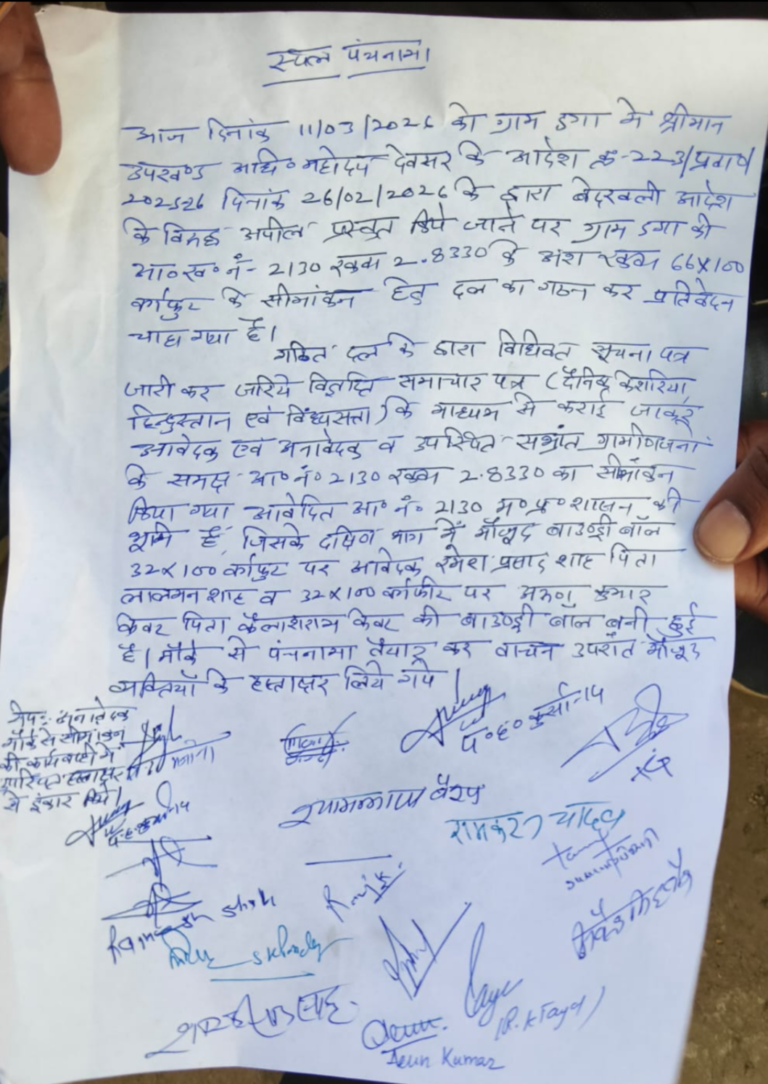 स्थल पंचनामा
आज दिनांक 11/03/2026 को ग्राम डगा मे श्रीमान
उपखण्ड अधि० महोदय देवसर के आदेश क्र-223/प्रवा०/
202526 दिनांक 26/02/2026 के द्वारा बेदखली आदेश
के विरूद्ध अपील प्रस्तुत किये जाने पर ग्राम डगा की
आ०ख०नं- 2130 रकवा 2.8330 के अंश रकवा 66x100
वर्गफुट के सीमांकन हेतु दल का गठन कर प्रतिवेदन
चाहा गया है।
गठित दल के द्वारा विधिवत सूचना पत्र
जारी कर जरिये विज्ञप्ति समाचार पत्र (दैनिक केशरिया
हिन्दुस्तान एवं विंध्यसत्ता) के माध्यम से कराई जाकर
आवेदक एवं अनावेदक व उपस्थित सभ्रांत ग्रामीणजनों
के समक्ष आ०नं० 2130 रकवा 2.8330 का सीमांकन
किया गया आवेदित आ० नं० 2130 म०प्र० शासन की
भूमि है, जिसके दक्षिण भाग में मौजूद बाउण्ड्री बॉल
32x100 वर्गफुट पर आवेदक रमेश प्रसाद शाह पिता
लालमन शाह व 32x100 वर्गफीट पर अरूण कुमार
केवट पिता कैलाशराम केवट की बाउण्ड्री बॉल बनी हुई
है। मौके से पंचनामा तैयार कर वाचन उपरांत मौजूद
व्यक्तियों के हस्ताक्षर लिये गये।
नोट:- अनावेदक
मौके से सीमांकन
की कार्यवाही में
हस्ताक्षर
से इंकार किये।
प०ह० कुर्सा-14
प०ह० कुर्सा-14
श्यामलाल वैश्य
रामकरन यादव
Ramesh shah
(R.K Tayal)
Arun Kumar